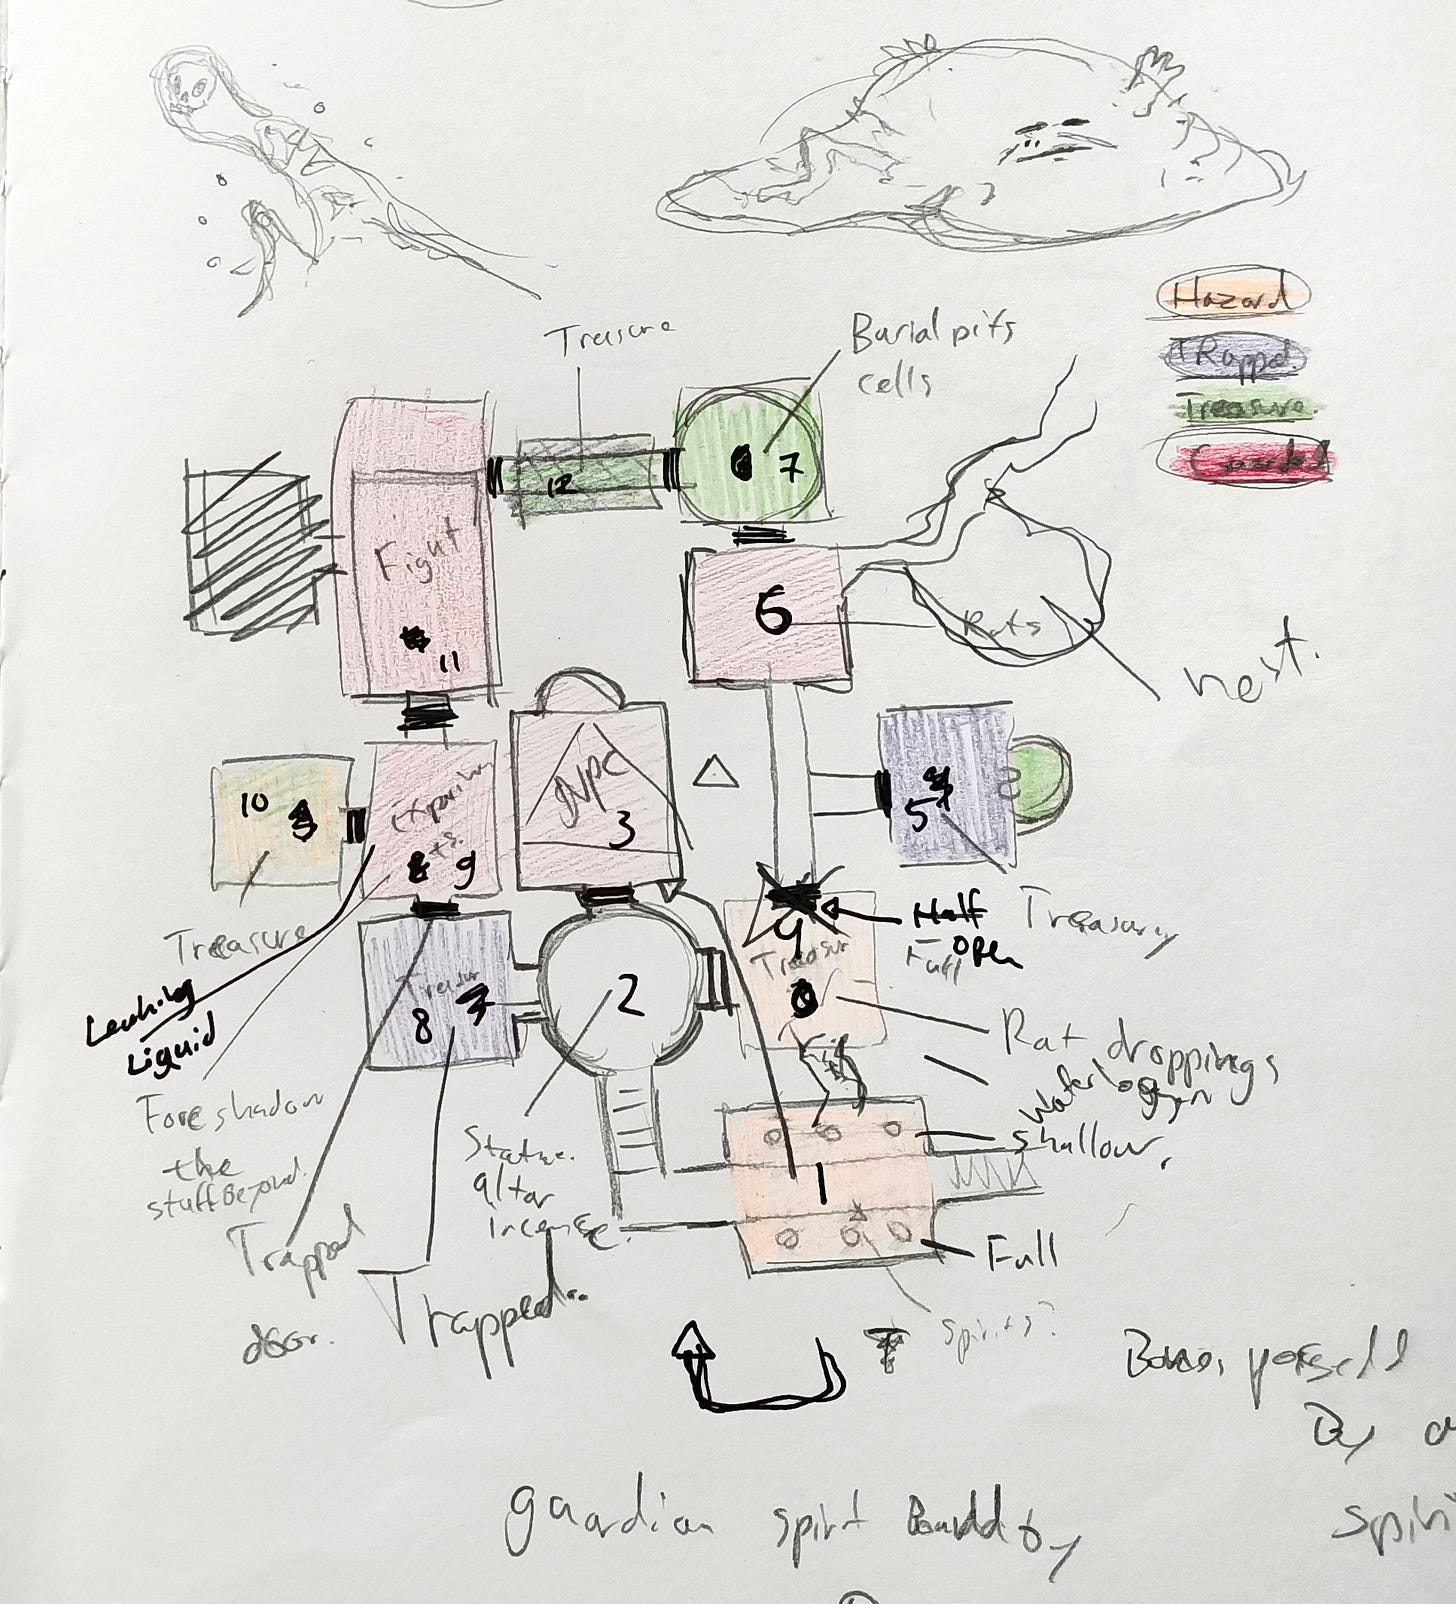 Hazard
TRapped
Treasure
Guarded
Treasure
Burial pits
cells
12
7
Fight
11
6
Rats
nest.
10
9
NPC
3
5
Treasure
Half
Full
open
Treasury
4
Treasur
8
2
Leaching
Liquid
Foreshadow
the
stuff Beyond.
Statue.
altar
incense.
Rat droppings
waterlogged
shallow.
1
Full
Trapped
door.
Trapped
spirits?
By a
guardian spirit
spiri